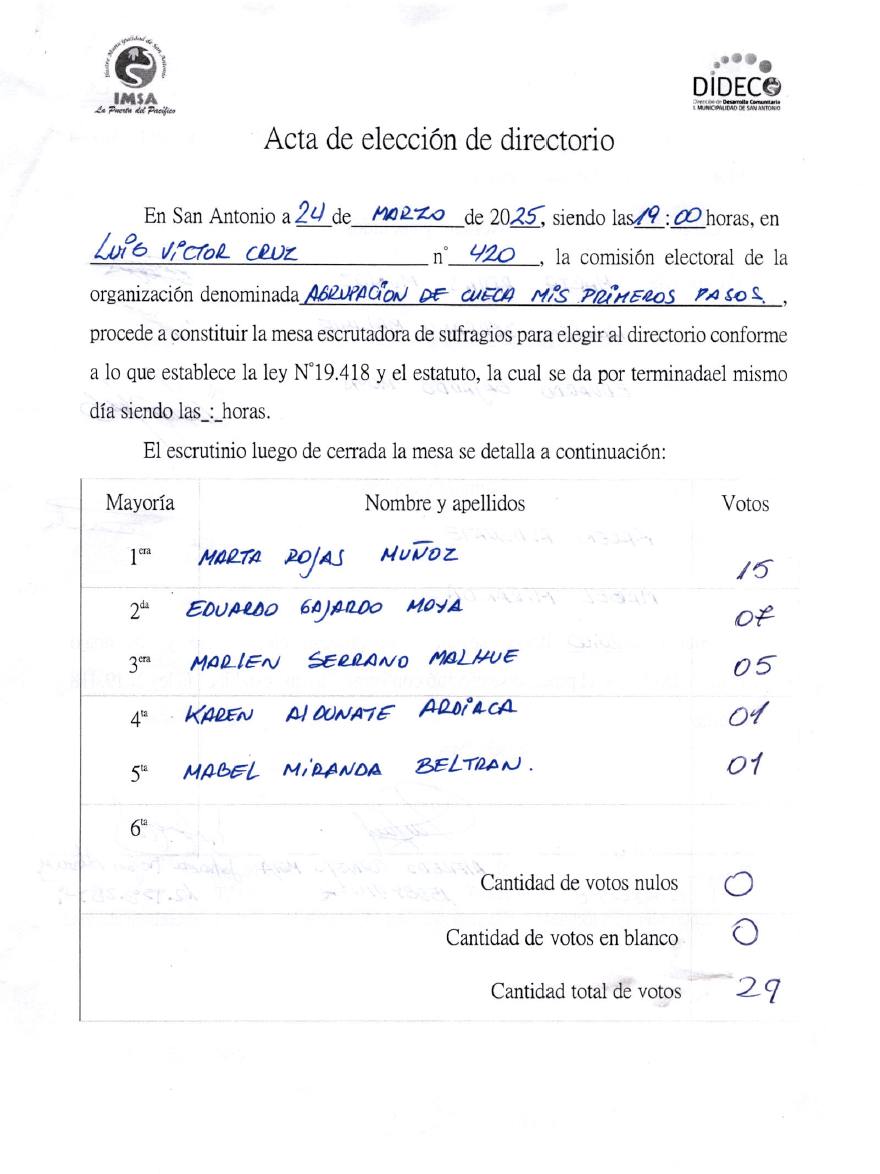 Ilustre Municipalidad de San Antonio
IMSA
La Puerta del Pacífico
DIDECO
Dirección de Desarrollo Comunitario
I. MUNICIPALIDAD DE SAN ANTONIO
Acta de elección de directorio
En San Antonio a 24 de MARZO de 2025, siendo las 19:00 horas, en
LUIS VICTOR CRUZ n° 420, la comisión electoral de la
organización denominada AGRUPACIÓN DE CUECA MIS PRIMEROS PASOS.,
procede a constituir la mesa escrutadora de sufragios para elegir al directorio conforme
a lo que establece la ley N°19.418 y el estatuto, la cual se da por terminadael mismo
día siendo las_:_horas.
El escrutinio luego de cerrada la mesa se detalla a continuación:
Mayoría Nombre y apellidos Votos
1cra MARTA ROJAS MUÑOZ 15
2da EDUARDO GAJARDO MOYA 07
3era MARIEN SERRANO MALHUE 05
4ta KAREN ALDUNATE ARDIACA 01
5ta MABEL MIRANDA BELTRAN. 01
6ta
Cantidad de votos nulos 0
Cantidad de votos en blanco 0
Cantidad total de votos 29